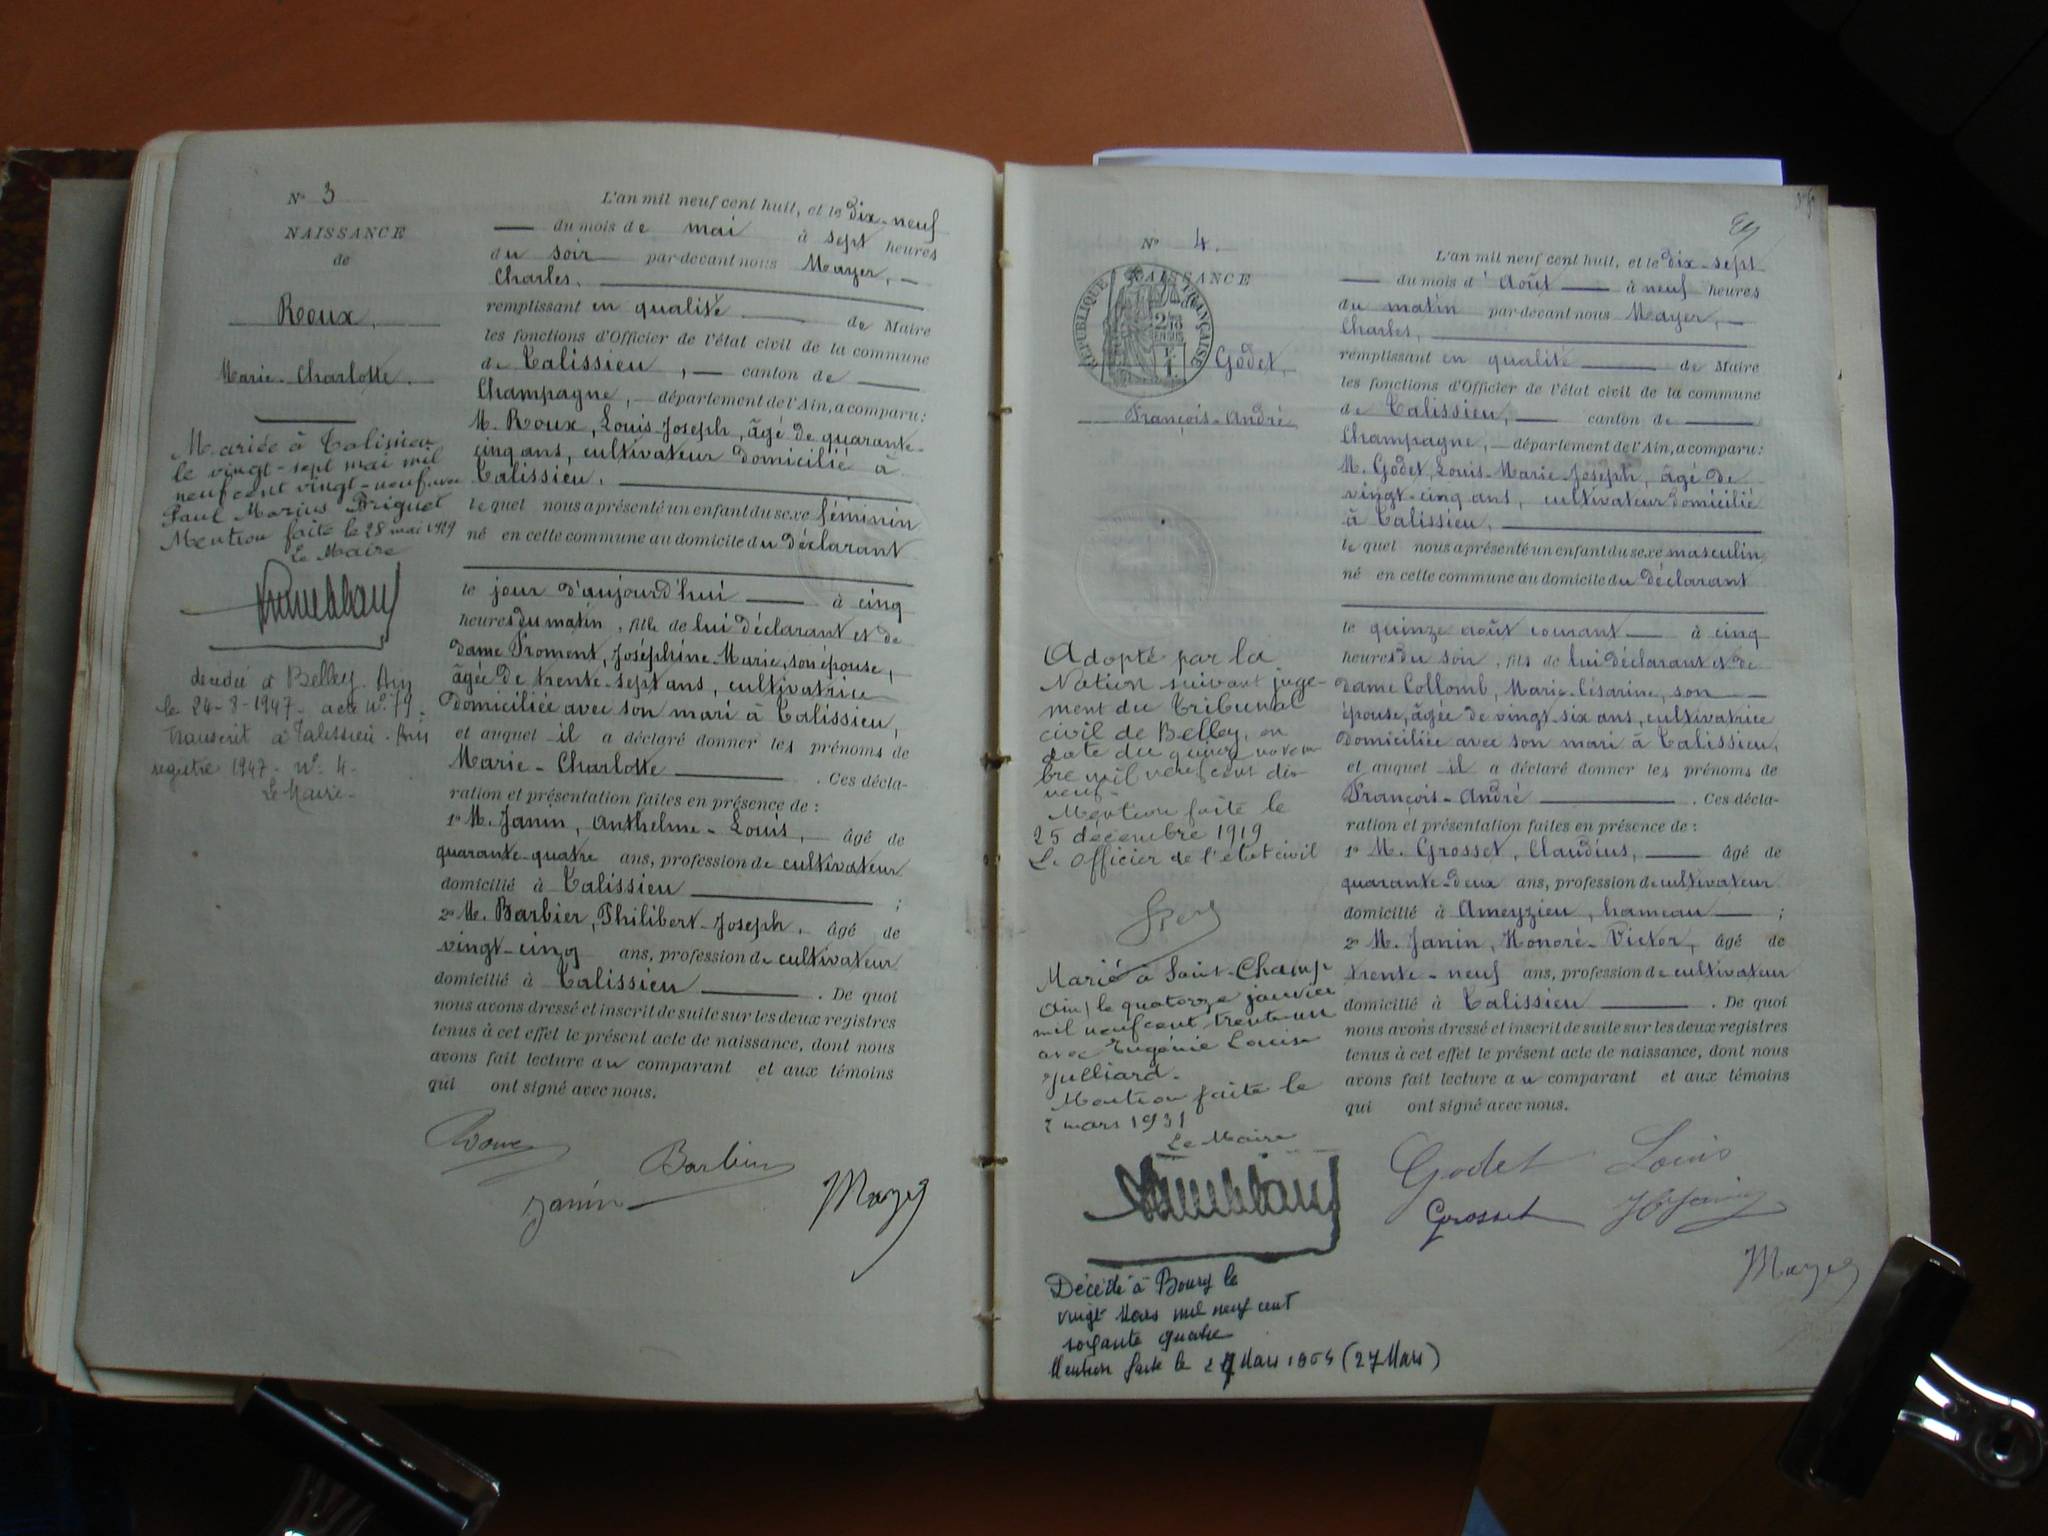 N° 3
NAISSANCE
de
Roux,
Marie-Charlotte.
Mariée à Talissieu
le vingt-sept mai mil
neuf cent vingt-neuf avec
Paul Marius Briguet
Mention faite le 28 mai 1929
Le Maire
décédée à Belley Ain
le 24-8-1947 - acte N° 79.
Transcrit à Talissieu - Ain
registre 1947 - n° 4 -
Le Maire -
L'an mil neuf cent huit, et le dix-neuf
du mois de mai à sept heures
du soir par-devant nous Mayer,
Charles,
remplissant en qualité de Maire
les fonctions d'Officier de l'état civil de la commune
de Talissieu, canton de
Champagne, département de l'Ain, a comparu:
M. Roux, Louis-Joseph, âgé de quarante-
cinq ans, cultivateur domicilié à
Talissieu,
lequel nous a présenté un enfant du sexe féminin
né en cette commune au domicile du déclarant
le jour d'aujourd'hui à cinq
heures du matin, fille de lui déclarant et de
dame Froment, Joséphine Marie, son épouse,
âgée de trente-sept ans, cultivatrice
domiciliée avec son mari à Talissieu,
et auquel il a déclaré donner les prénoms de
Marie-Charlotte. Ces décla-
ration et présentation faites en présence de:
1° M. Janin, Anthelme-Louis, âgé de
quarante-quatre ans, profession de cultivateur
domicilié à Talissieu;
2° M. Barbier, Philibert-Joseph, âgé de
vingt-cinq ans, profession de cultivateur
domicilié à Talissieu. De quoi
nous avons dressé et inscrit de suite sur les deux registres
tenus à cet effet le présent acte de naissance, dont nous
avons fait lecture au comparant et aux témoins
qui ont signé avec nous.
Roux
Barbier
Janin
Mayer
N° 4.
NAISSANCE
RÉPUBLIQUE FRANÇAISE
Godet,
François-André
Adopté par la
Nation suivant juge-
ment du Tribunal
civil de Belley, en
date du quinze novem
bre mil neuf cent dix
neuf -
Mention faite le
25 décembre 1919
L'officier de l'état civil
Marié à Saint-Champ
Ain, le quatorze janvier
mil neuf cent trente-un
avec Eugénie Louise
Julliard.
Mention faite le
2 mars 1931
Le Maire
Décédé à Bourg le
vingt Mars mil neuf cent
soixante quatre
Mention faite le 27 Mars 1964 (27 Mars)
L'an mil neuf cent huit, et le dix-sept
du mois d'Août à neuf heures
du matin par-devant nous Mayer,
Charles,
remplissant en qualité de Maire
les fonctions d'Officier de l'état civil de la commune
de Talissieu, canton de
Champagne, département de l'Ain, a comparu:
M. Godet, Louis-Marie-Joseph, âgé de
vingt-cinq ans, cultivateur domicilié
à Talissieu,
lequel nous a présenté un enfant du sexe masculin
né en cette commune au domicile du déclarant
le quinze août courant à cinq
heures du soir, fils de lui déclarant et de
dame Collomb, Marie-Césarine, son
épouse, âgée de vingt-six ans, cultivatrice
domiciliée avec son mari à Talissieu,
et auquel il a déclaré donner les prénoms de
François-André. Ces décla-
ration et présentation faites en présence de:
1° M. Grosset, Claudius, âgé de
quarante-deux ans, profession de cultivateur
domicilié à Ameyzieu, hameau;
2° M. Janin, Honoré-Victor, âgé de
trente-neuf ans, profession de cultivateur
domicilié à Talissieu. De quoi
nous avons dressé et inscrit de suite sur les deux registres
tenus à cet effet le présent acte de naissance, dont nous
avons fait lecture au comparant et aux témoins
qui ont signé avec nous.
Godet Louis
Grosset
Mayer